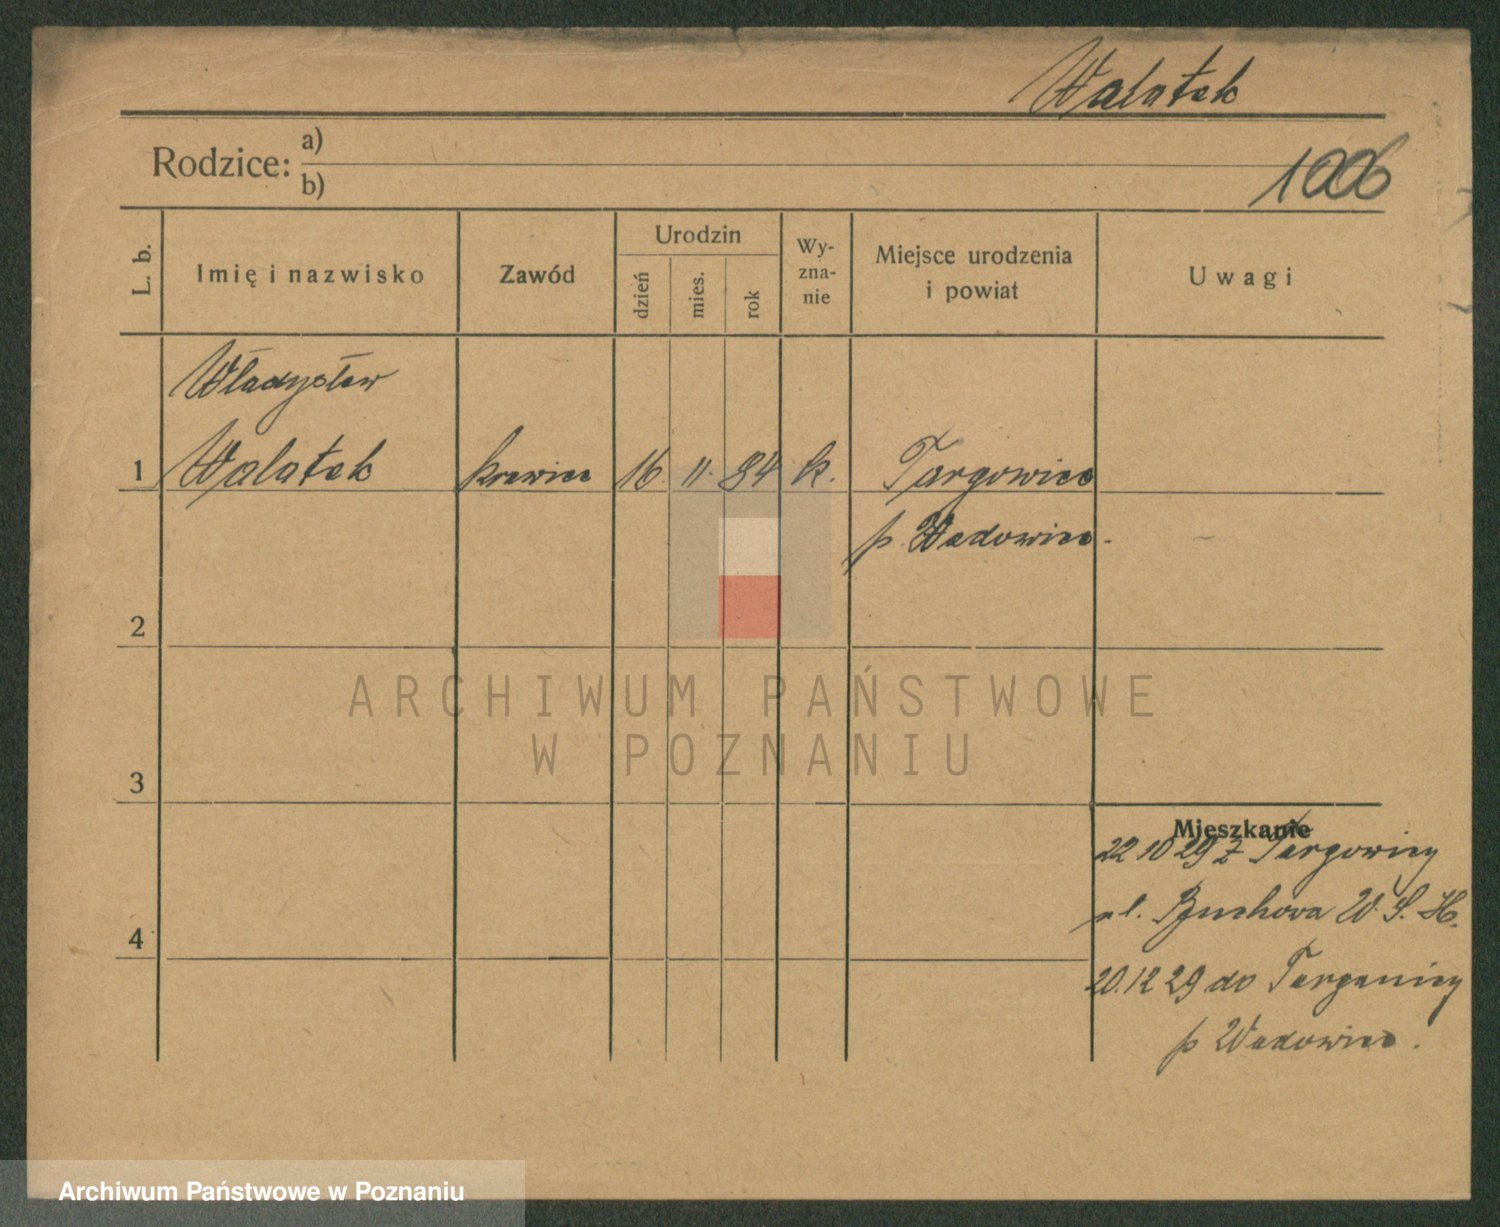 Walatek
Rodzice: a)
b)
1006
L. b.
Imię i nazwisko
Zawód
Urodzin
dzień
mies.
rok
Wy-
zna-
nie
Miejsce urodzenia
i powiat
Uwagi
Władysław
1 Walatek krawiec 16. 11. 84 k. Targowice
p. Wadowice.
2
3
4
Mieszkanie
22 10 29 z Targowicy
ul. W. S. H.
20.12 29 do Targanicy
p Wadowice.
ARCHIWUM PAŃSTWOWE
W POZNANIU
Archiwum Państwowe w Poznaniu